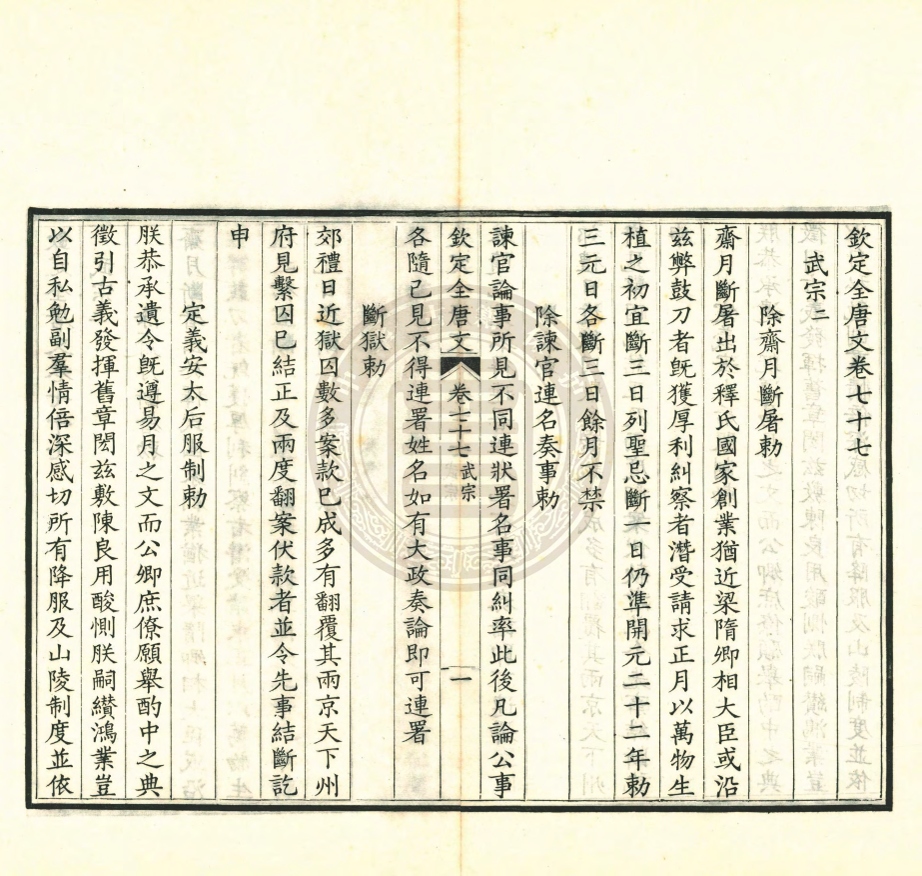 欽定全唐文卷七十七
武宗二
除齋月斷屠勅
齋月斷屠出於釋氏國家創業猶近梁隋卿相大臣或沿
茲弊鼓刀者旣獲厚利糾察者潛受請求正月以萬物生
植之初宜斷三日列聖忌斷一日仍準開元二十二年勅
三元日各斷三日餘月不禁
除諫官連名奏事勅
諫官論事所見不同連狀署名事同糾率此後凡論公事
欽定全唐文 卷七十七 武宗 一
各隨己見不得連署姓名如有大政奏論即可連署
斷獄勅
郊禮日近獄囚數多案款已成多有翻覆其兩京天下州
府見繫囚已結正及兩度翻案伏款者並令先事結斷訖
申
定義安太后服制勅
朕恭承遺令旣遵易月之文而公卿庶僚願舉酌中之典
徵引古義發揮舊章閎茲敷陳良用酸惻朕嗣纘鴻業豈
以自私勉副羣情倍深感切所有降服及山陵制度並依